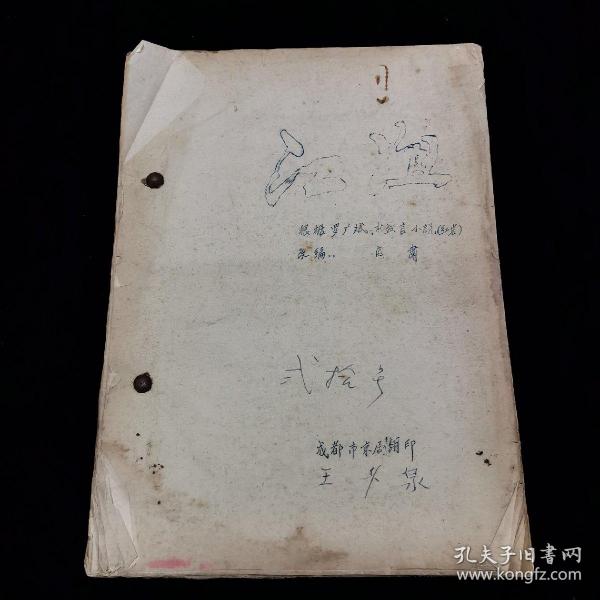 江姐
根据罗广斌、杨益言小说(红岩)
改编：阎肃
弍拾号
成都市京剧团翻印
孔夫子旧書网
www.kongfz.com